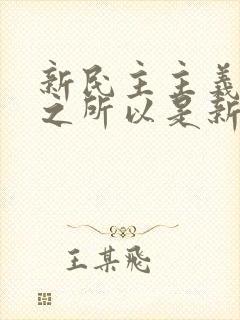 新民主主義
之所以是新
王某飛